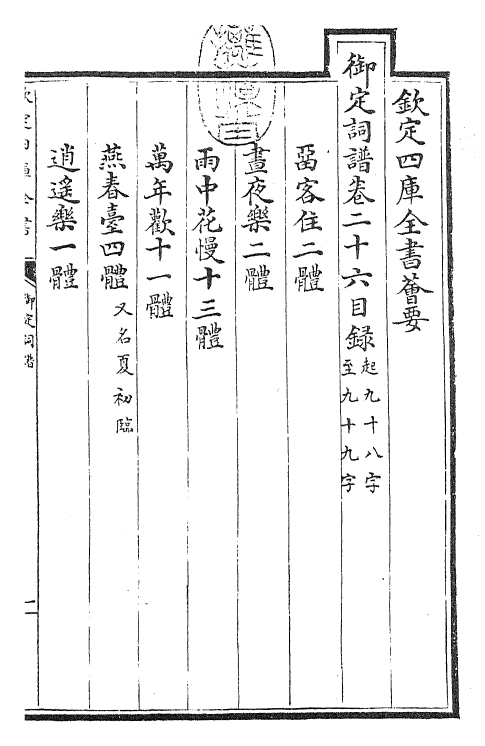 欽定四庫全書薈要
御定詞譜卷二十六目録起九十八字至九十九字
畱客住二體
晝夜樂二體
雨中花慢十三體
萬年歡十一體
燕春臺四體又名夏初臨
逍遙樂一體
欽定四庫全書
御定詞譜